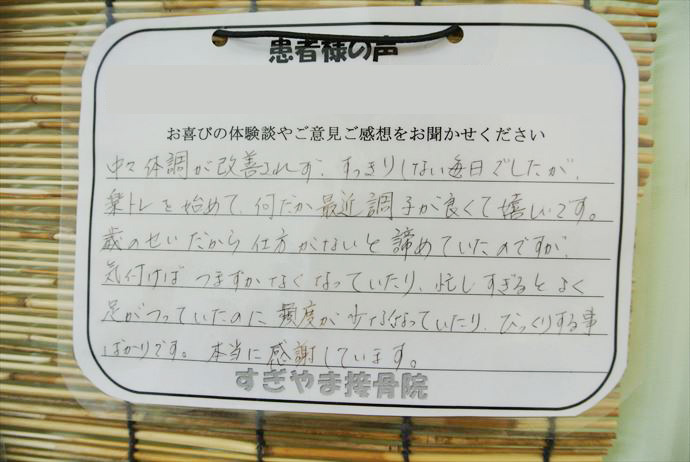 患者様の声
お喜びの体験談やご意見ご感想をお聞かせください
中々体調が改善されず、すっきりしない毎日でしたが、
楽トレを始めて、何だか最近調子が良くて嬉しいです。
歳のせいだから仕方がないと諦めていたのですが、
気付けばつまずかなくなっていたり、忙しすぎるとよく
足がつっていたのに頻度が少なくなっていたり、びっくりする事
ばかりです。本当に感謝しています。
すぎやま接骨院